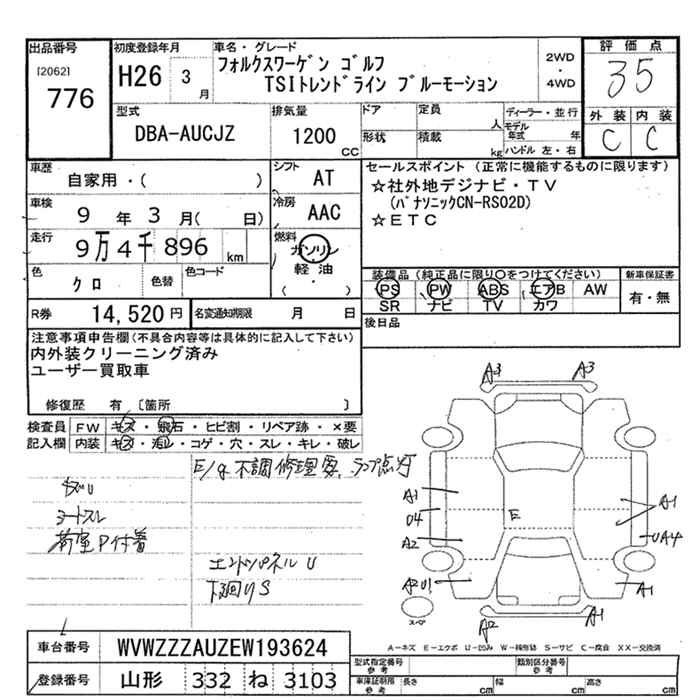 出品番号
[2062]
776
初度登録年月
H26 3 月
車名・グレード
フォルクスワーゲン ゴルフ
TSIトレンドライン ブルーモーション
2WD
・
4WD
評価点
3.5
外装 内装
C C
型式
DBA-AUCJZ
排気量
1200 CC
ドア
形状
定員 人
積載 kg
ディーラー・並行
モデル年式 年
ハンドル 左・右
車歴
自家用・( )
シフト
AT
車検
9 年 3 月( 日)
冷房
AAC
走行
9万4千896 km
燃料
ガソリン
軽油
( )
色
クロ
色替
色コード
R券 14,520円
名変通知期限 月 日
セールスポイント (正常に機能するものに限ります)
☆社外地デジナビ・TV
(パナソニックCN-RS02D)
☆ETC
装備品 (純正品に限り○をつけてください)
新車保証書
PS PW ABS エアB AW
SR ナビ TV カワ
有・無
後日品
注意事項申告欄(不具合内容等は具体的に記入して下さい)
内外装クリーニング済み
ユーザー買取車
修復歴 有 〔箇所 〕
検査員
記入欄
FW キズ・飛石・ヒビ割・リペア跡・×要
内装 キズ・汚レ・コゲ・穴・スレ・キレ・破レ
E/g不調修理要、ランプ点灯
シートスレ
荷室P付着
エンドパネルU
下廻りS
A3 A3
A1
U4
A2
A2U1
E
A1
UA4
A1
A2 A1
スペア
A-キズ E-エクボ U-凹み W-補修跡 S-サビ C-腐食 XX-交換済
車台番号 WVWZZZAUZEW193624
登録番号 山形 332 ね 3103
型式指定番号 参考
類別区分番号 参考
車庫証明用 参考 長さ cm 幅 cm 高さ cm